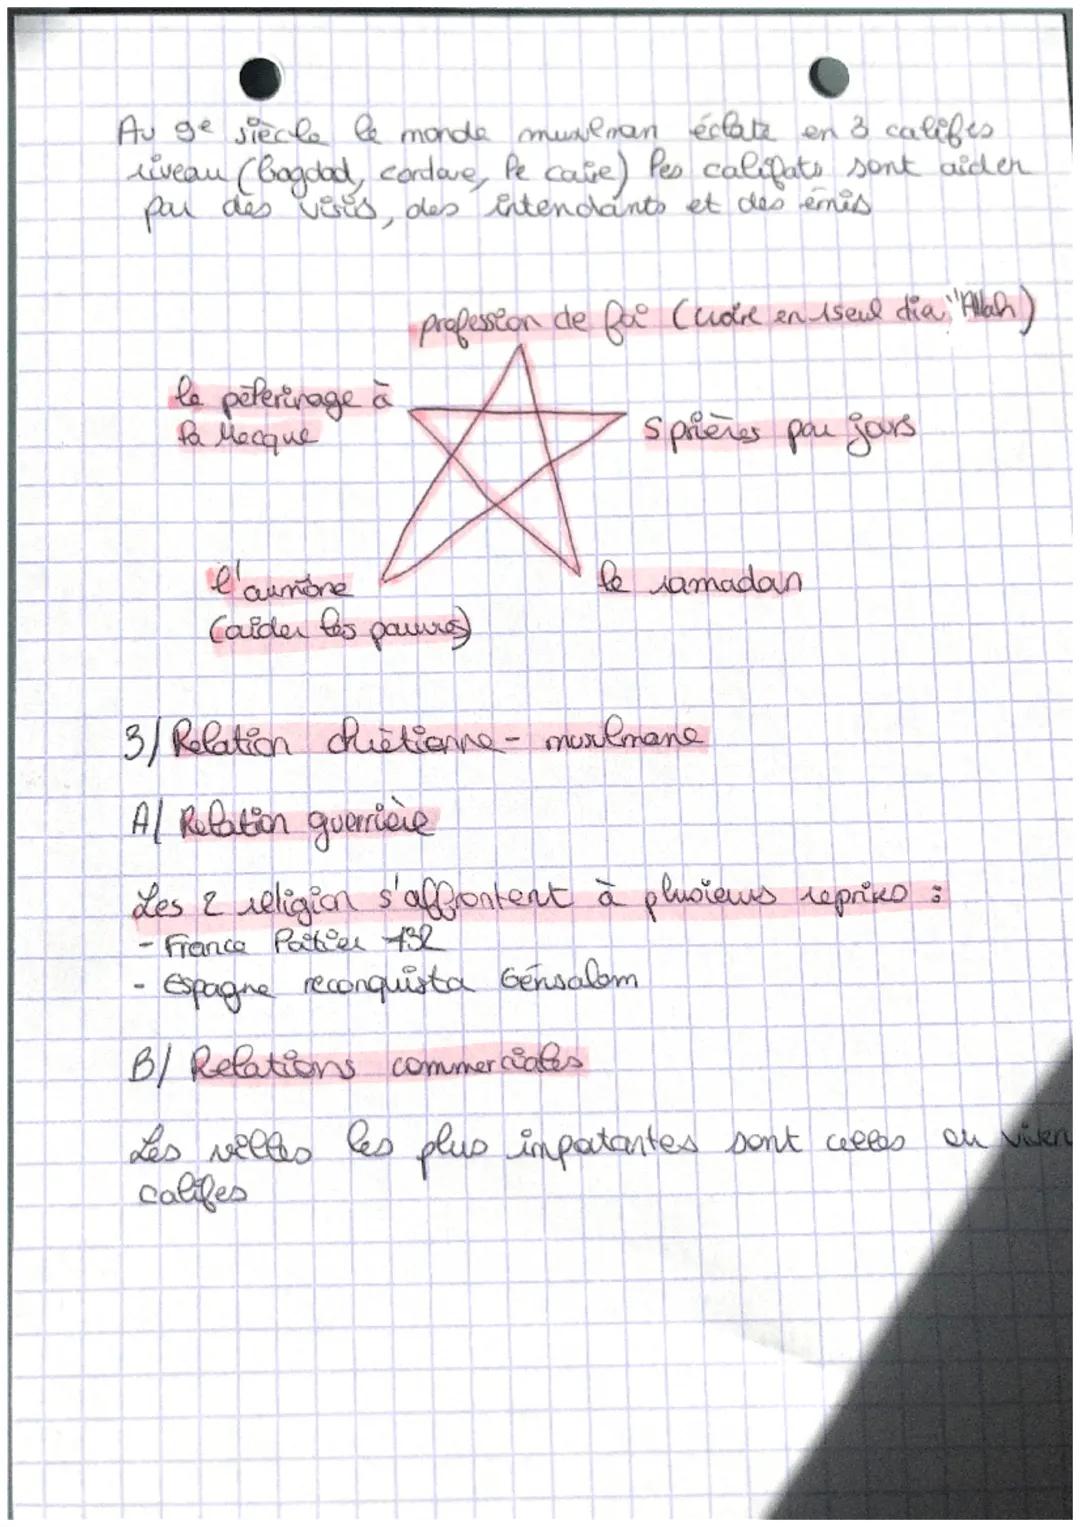 Au 9e siècle le monde musulman éclate en 3 califes
riveau (bagdad, cordove, le caire) les califats sont aider
par des visirs, des intendants et des émirs
profession de foi (croire en 1 seul dieu "Allah)
le pèlerinage à
la Mecque
5 prières par jours
l'aumône
(aider les pauvres)
le ramadan
3/ Relation chrétienne - musulmane
A/ Relation guerrière
Les 2 religion s'affrontent à plusieurs reprises :
- France Poitier 732
- Espagne reconquista Gérusalem
B/ Relations commerciales
Les villes les plus inportantes sont celles ou viven
califes